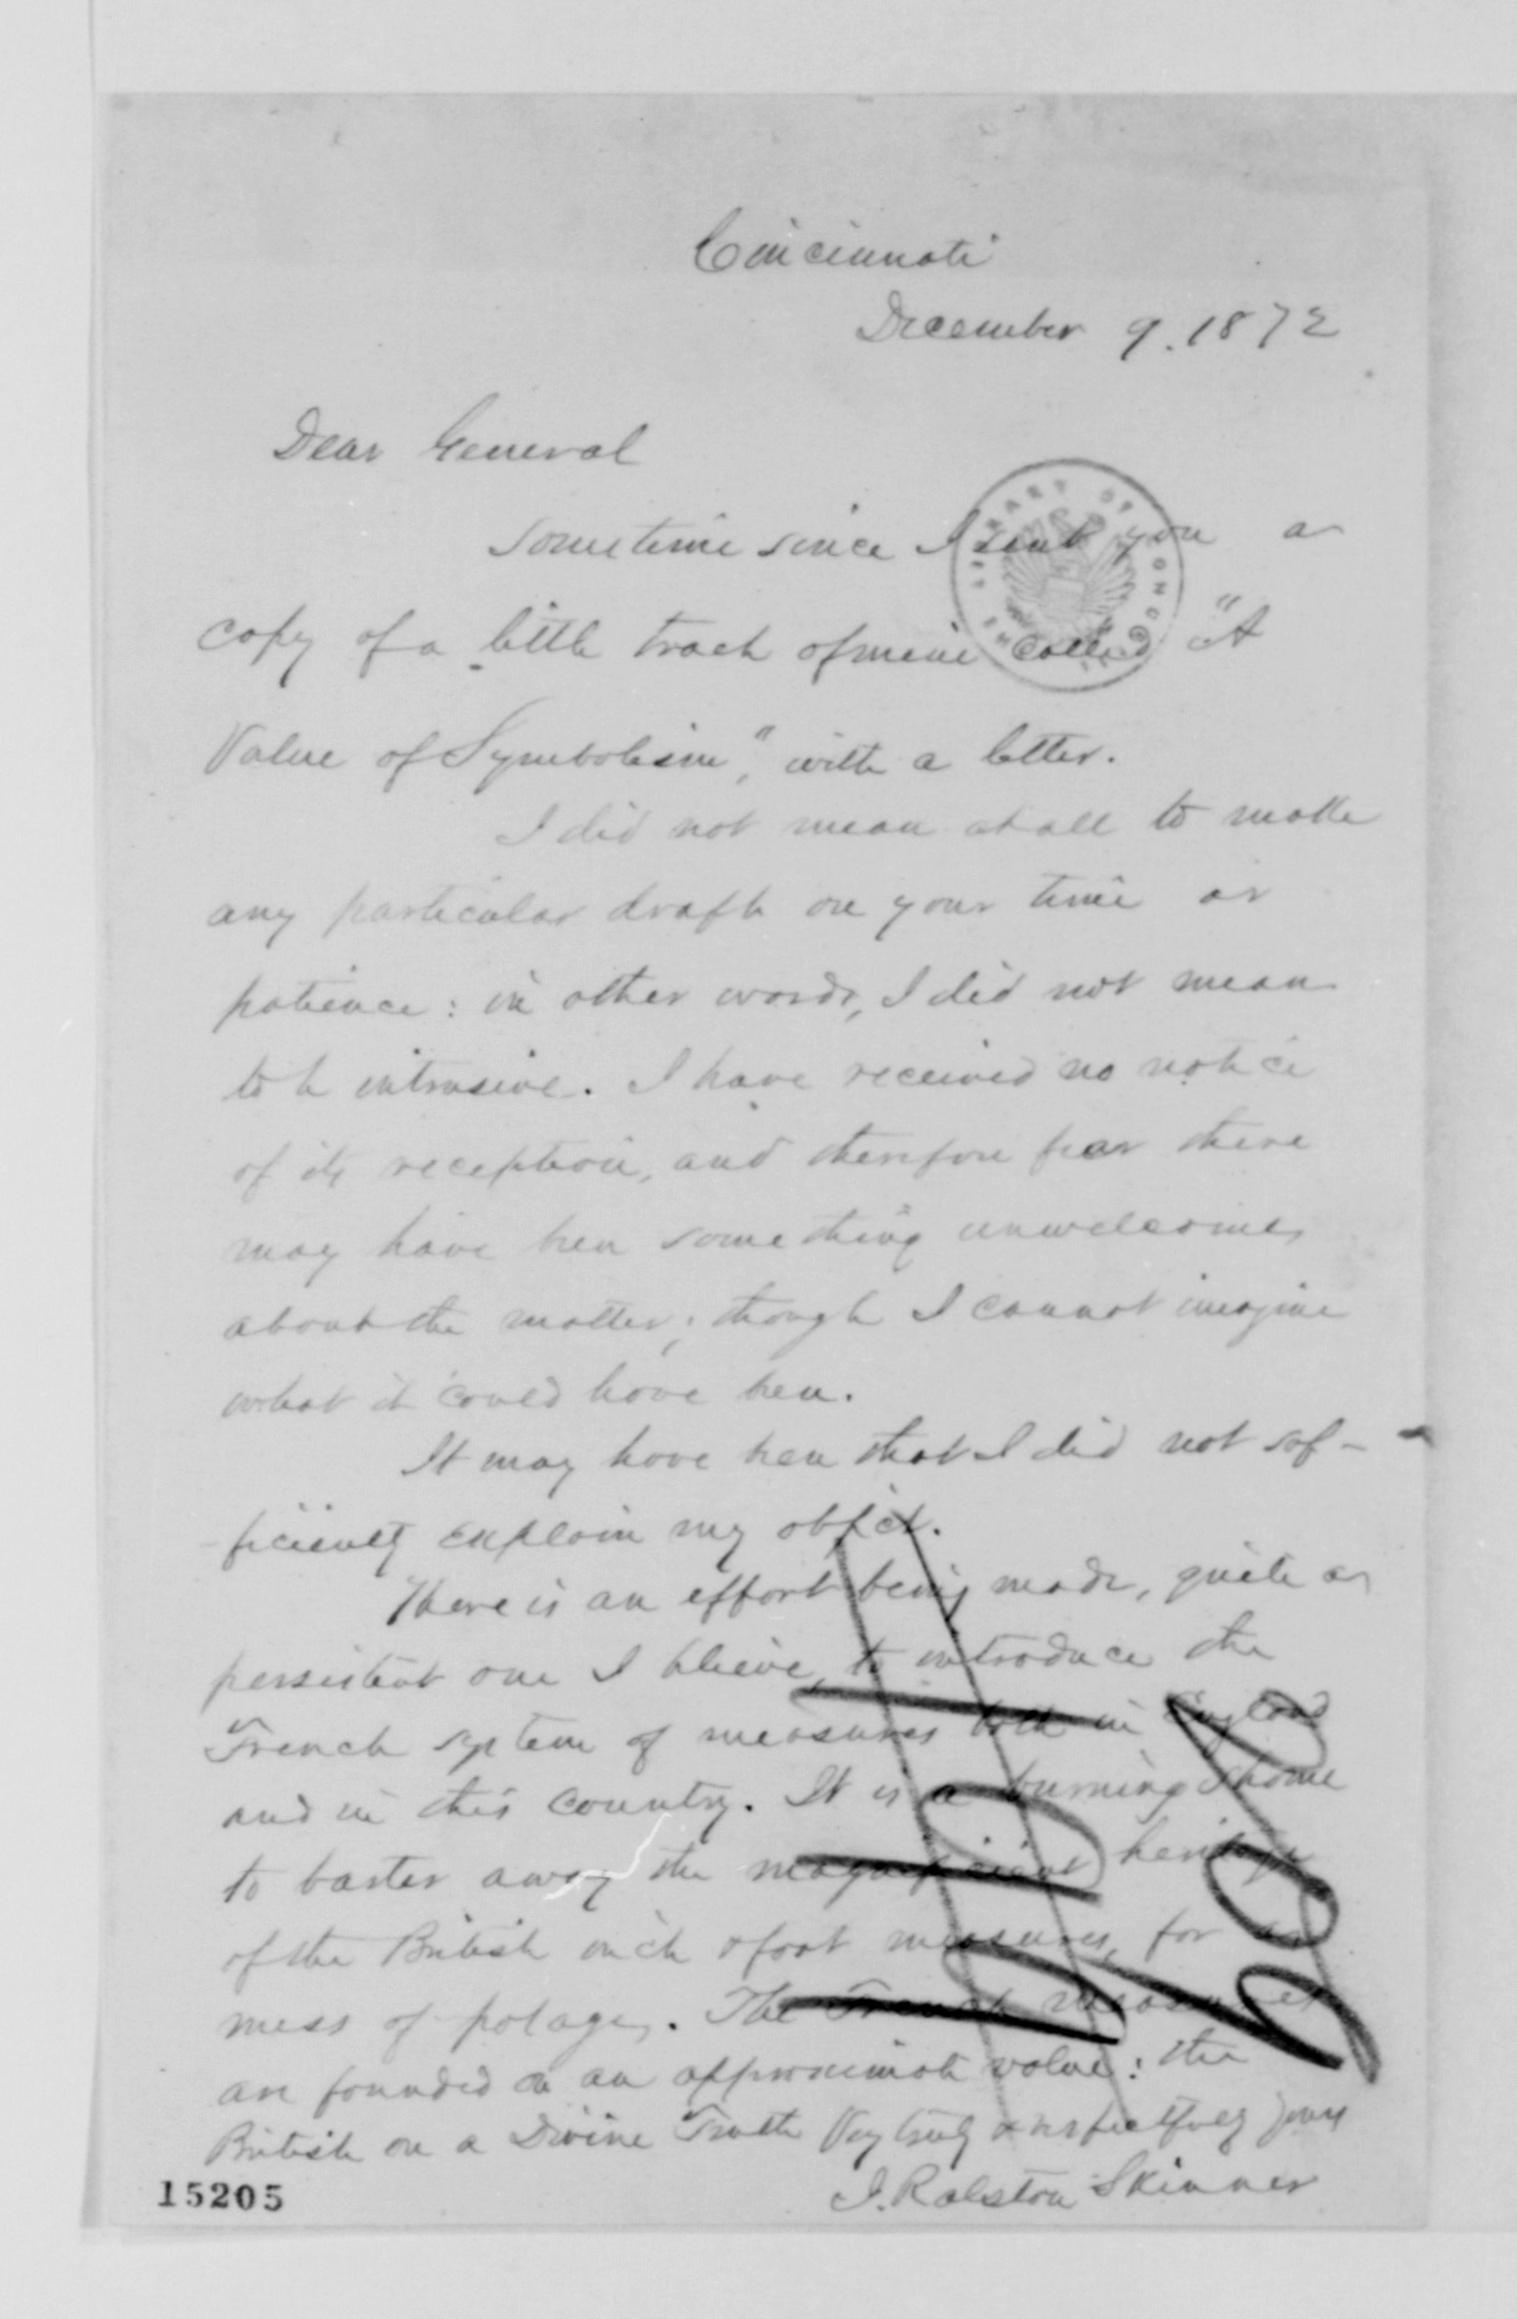 Cincinnati
December 9. 1872
Dear General
Sometime since I sent you a
copy of a little tract of mine called "A
Value of Symbolism", with a letter.
I did not mean at all to make
any particular draft on your time or
patience: in other words, I did not mean
to be intrusive. I have received no notice
of its reception, and therefore fear there
may have been something unwelcome,
about the matter; though I cannot imagine
what it could have been.
It may have been that I did not suf-
ficiently explain my object.
There is an effort being made, quite a
persistent one I believe, to introduce the
French system of measures both in England
and in this country. It is a burning shame
to barter away the magnificent heritage
of the British inch & foot measures, for a
mess of potage. The French measures
are founded on an approximate value: the
British on a Divine Truth Very truly & respectfully yours
J. Ralston Skinner
LIBRARY OF CONGRESS
15205